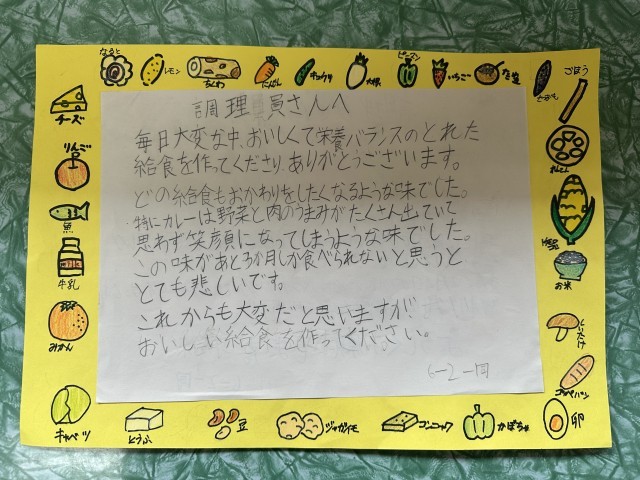 なると
レモン
ちくわ
にんじん
キュウリ
大根
ピーマン
いちご
ごぼう
チーズ
りんご
魚
牛乳
みかん
キャベツ
とうふ
豆
ジャガイモ
コンニャク
かぼちゃ
卵
コッペパン
しいたけ
お米
れんこん
調理員さんへ
毎日大変な中、おいしくて栄養バランスのとれた
給食を作ってくださり、ありがとうございます。
どの給食もおかわりをしたくなるような味でした。
特にカレーは野菜と肉のうまみがたくさん出ていて
思わず笑顔になってしまうような味でした。
この味があと3か月しか食べられないと思うと
とても悲しいです。
これからも大変だと思いますが
おいしい給食を作ってください。
6-2一同